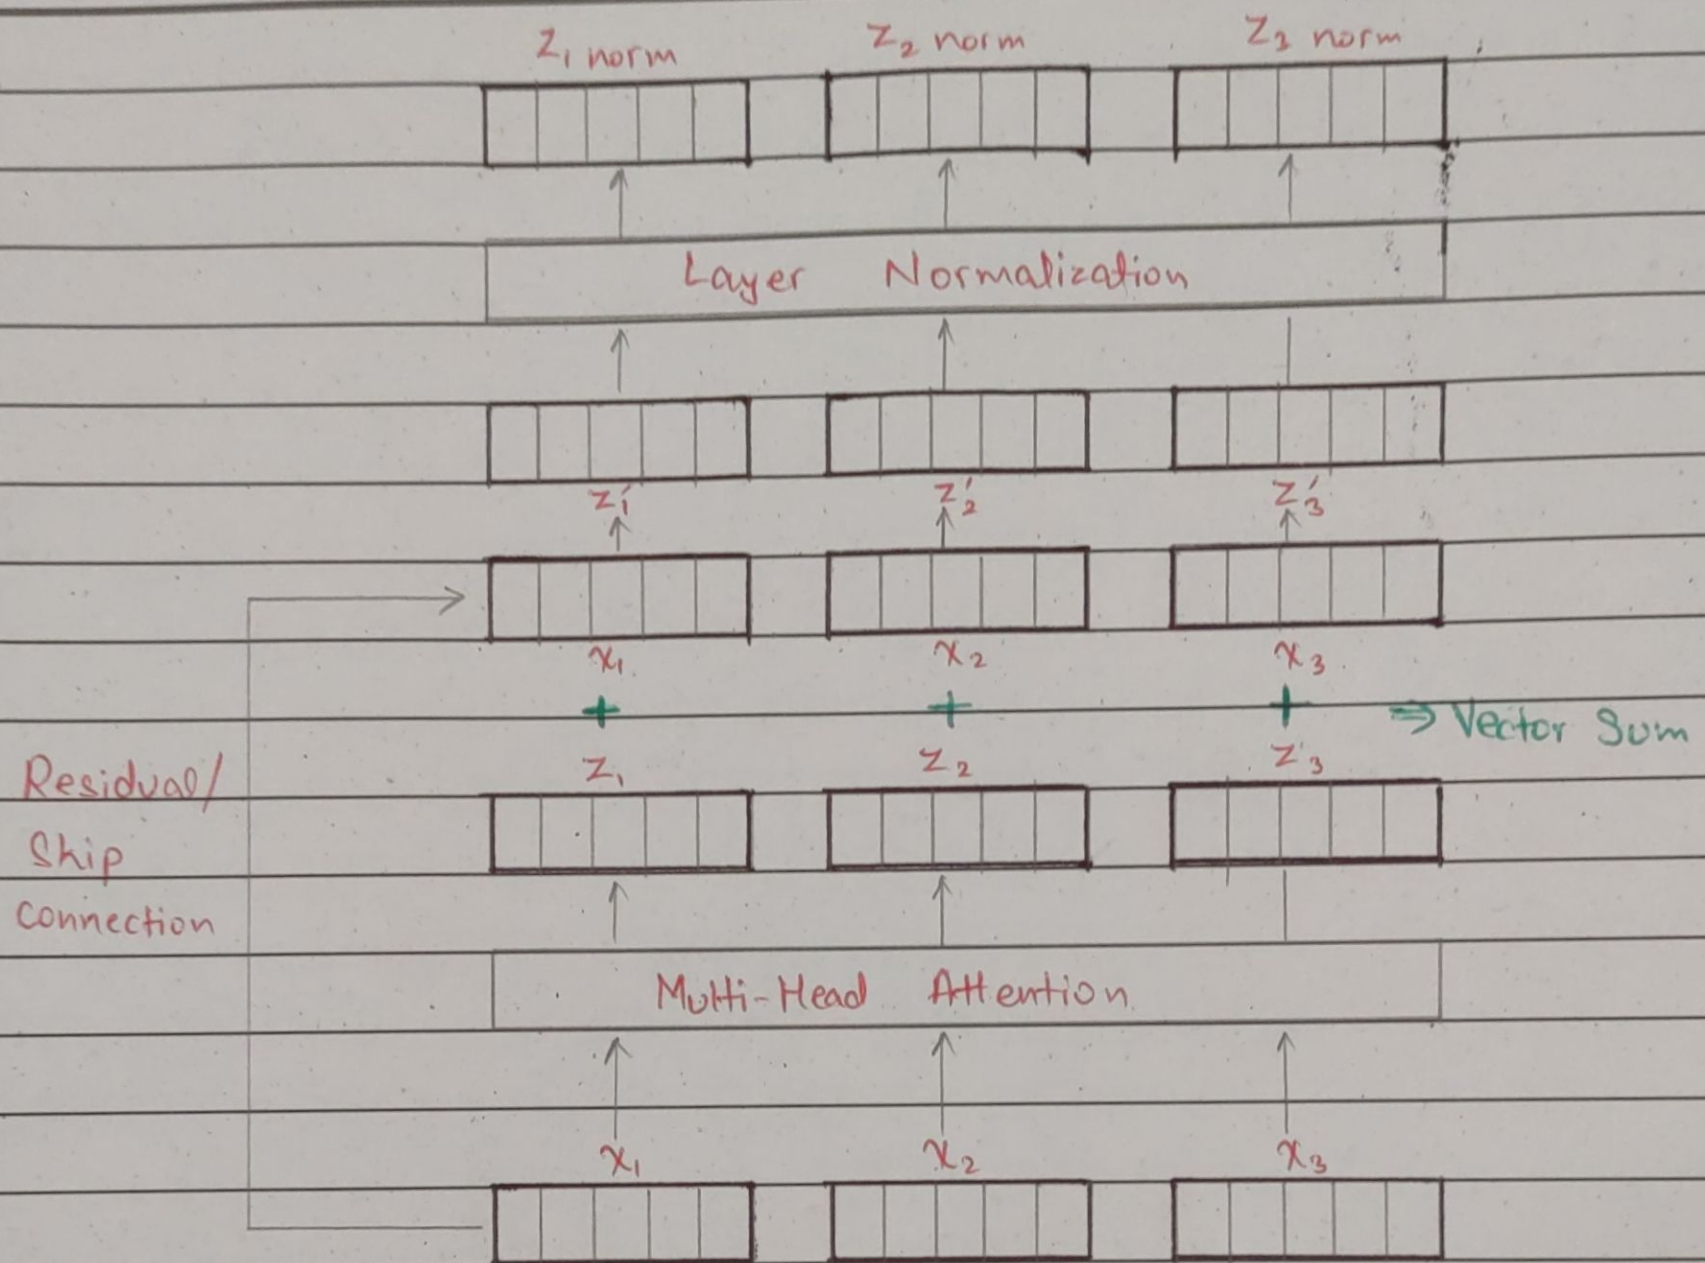 Z₁ norm Z₂ norm Z₃ norm
Layer Normalization
Z₁′ Z₂′ Z₃′
x₁ x₂ x₃
+ + + ⇒ Vector Sum
Z₁ Z₂ Z₃
Residual/
Skip
Connection
Multi-Head Attention
x₁ x₂ x₃